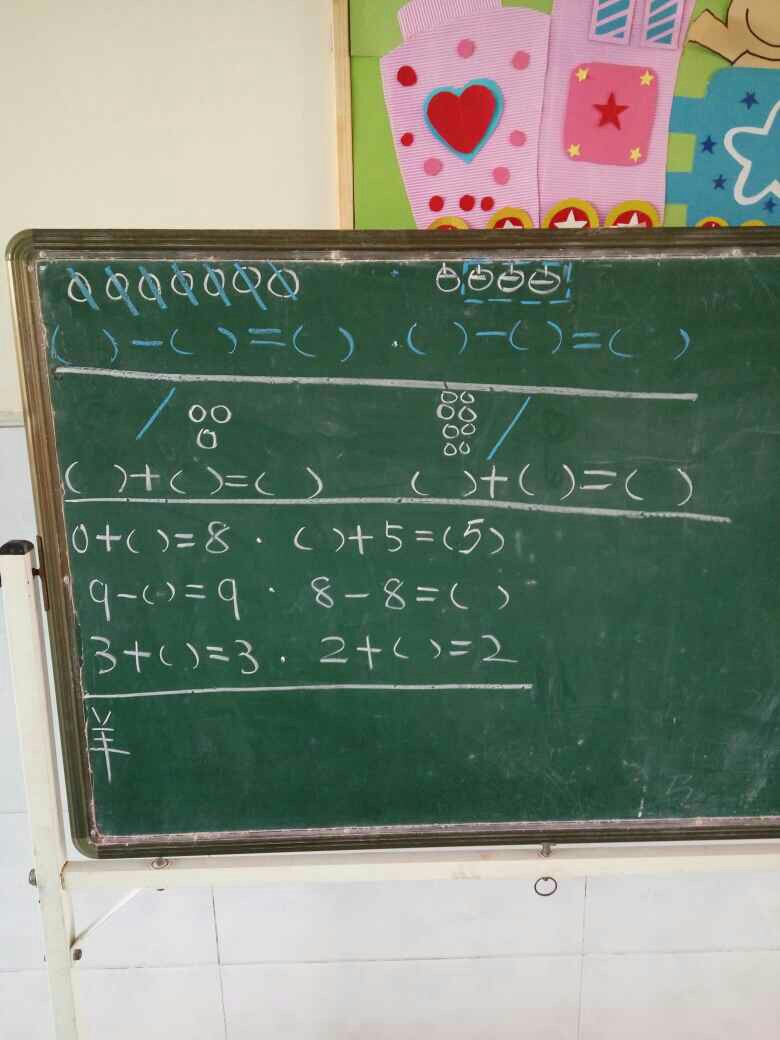 ( )-( )=( ) . ( )-( )=( )
( )+( )=( ) ( )+( )=( )
0+( )=8 . ( )+5=(5)
9-( )=9 . 8-8=( )
3+( )=3 . 2+( )=2
羊